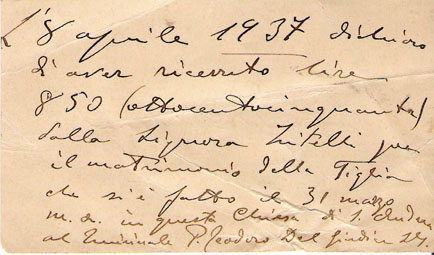 L'8 aprile 1937 dichiaro
d'aver ricevuto lire
850 (ottocentocinquanta)
dalla Signora Zitelli per
il matrimonio della Figlia
che si è fatto il 31 marzo
m. a. in questa Chiesa di S. Andrea
al Quirinale P. Teodoro Del Giudice